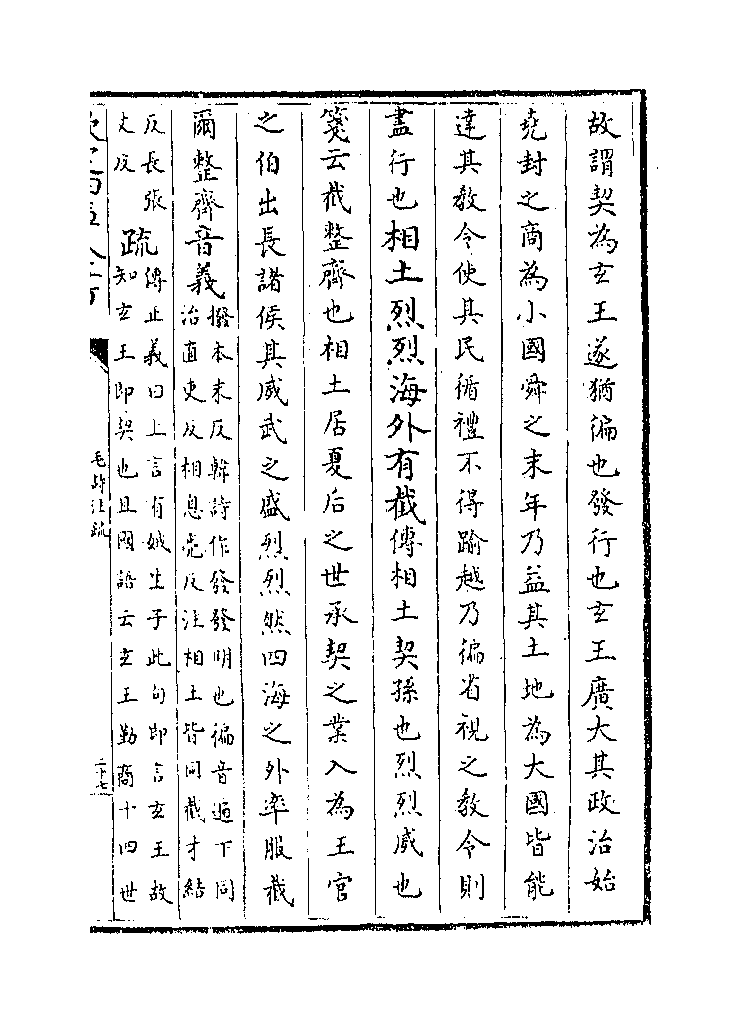 故謂契為玄王遂猶徧也發行也玄王廣大其政治始
堯封之商為小國舜之末年乃益其土地為大國皆能
達其教令使其民循禮不得踰越乃徧省視之教令則
盡行也相土烈烈海外有截傳相土契孫也烈烈威也
箋云截整齊也相土居夏后之世承契之業入為王官
之伯出長諸侯其威武之盛烈烈然四海之外率服截
爾整齊音義
撥本末反韓詩作發發明也徧音遍下同
治直吏反相息亮反注相土皆同截才結
反長張
丈反
疏
傳正義曰上言有娀生子此句即言玄王故
知玄王即契也且國語云玄王勤商十四世
毛詩注疏
二十七